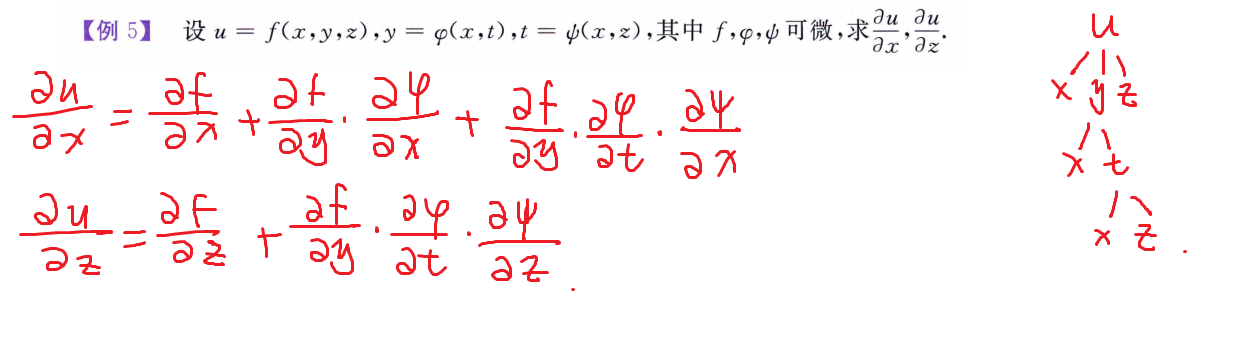 【例 5】 设 u = f(x,y,z),y = φ(x,t),t = ψ(x,z),其中 f,φ,ψ 可微,求∂u/∂x,∂u/∂z.
∂u/∂x = ∂f/∂x + ∂f/∂y · ∂φ/∂x + ∂f/∂y · ∂φ/∂t · ∂ψ/∂x
∂u/∂z = ∂f/∂z + ∂f/∂y · ∂φ/∂t · ∂ψ/∂z .
u
x y z
x t
x z .